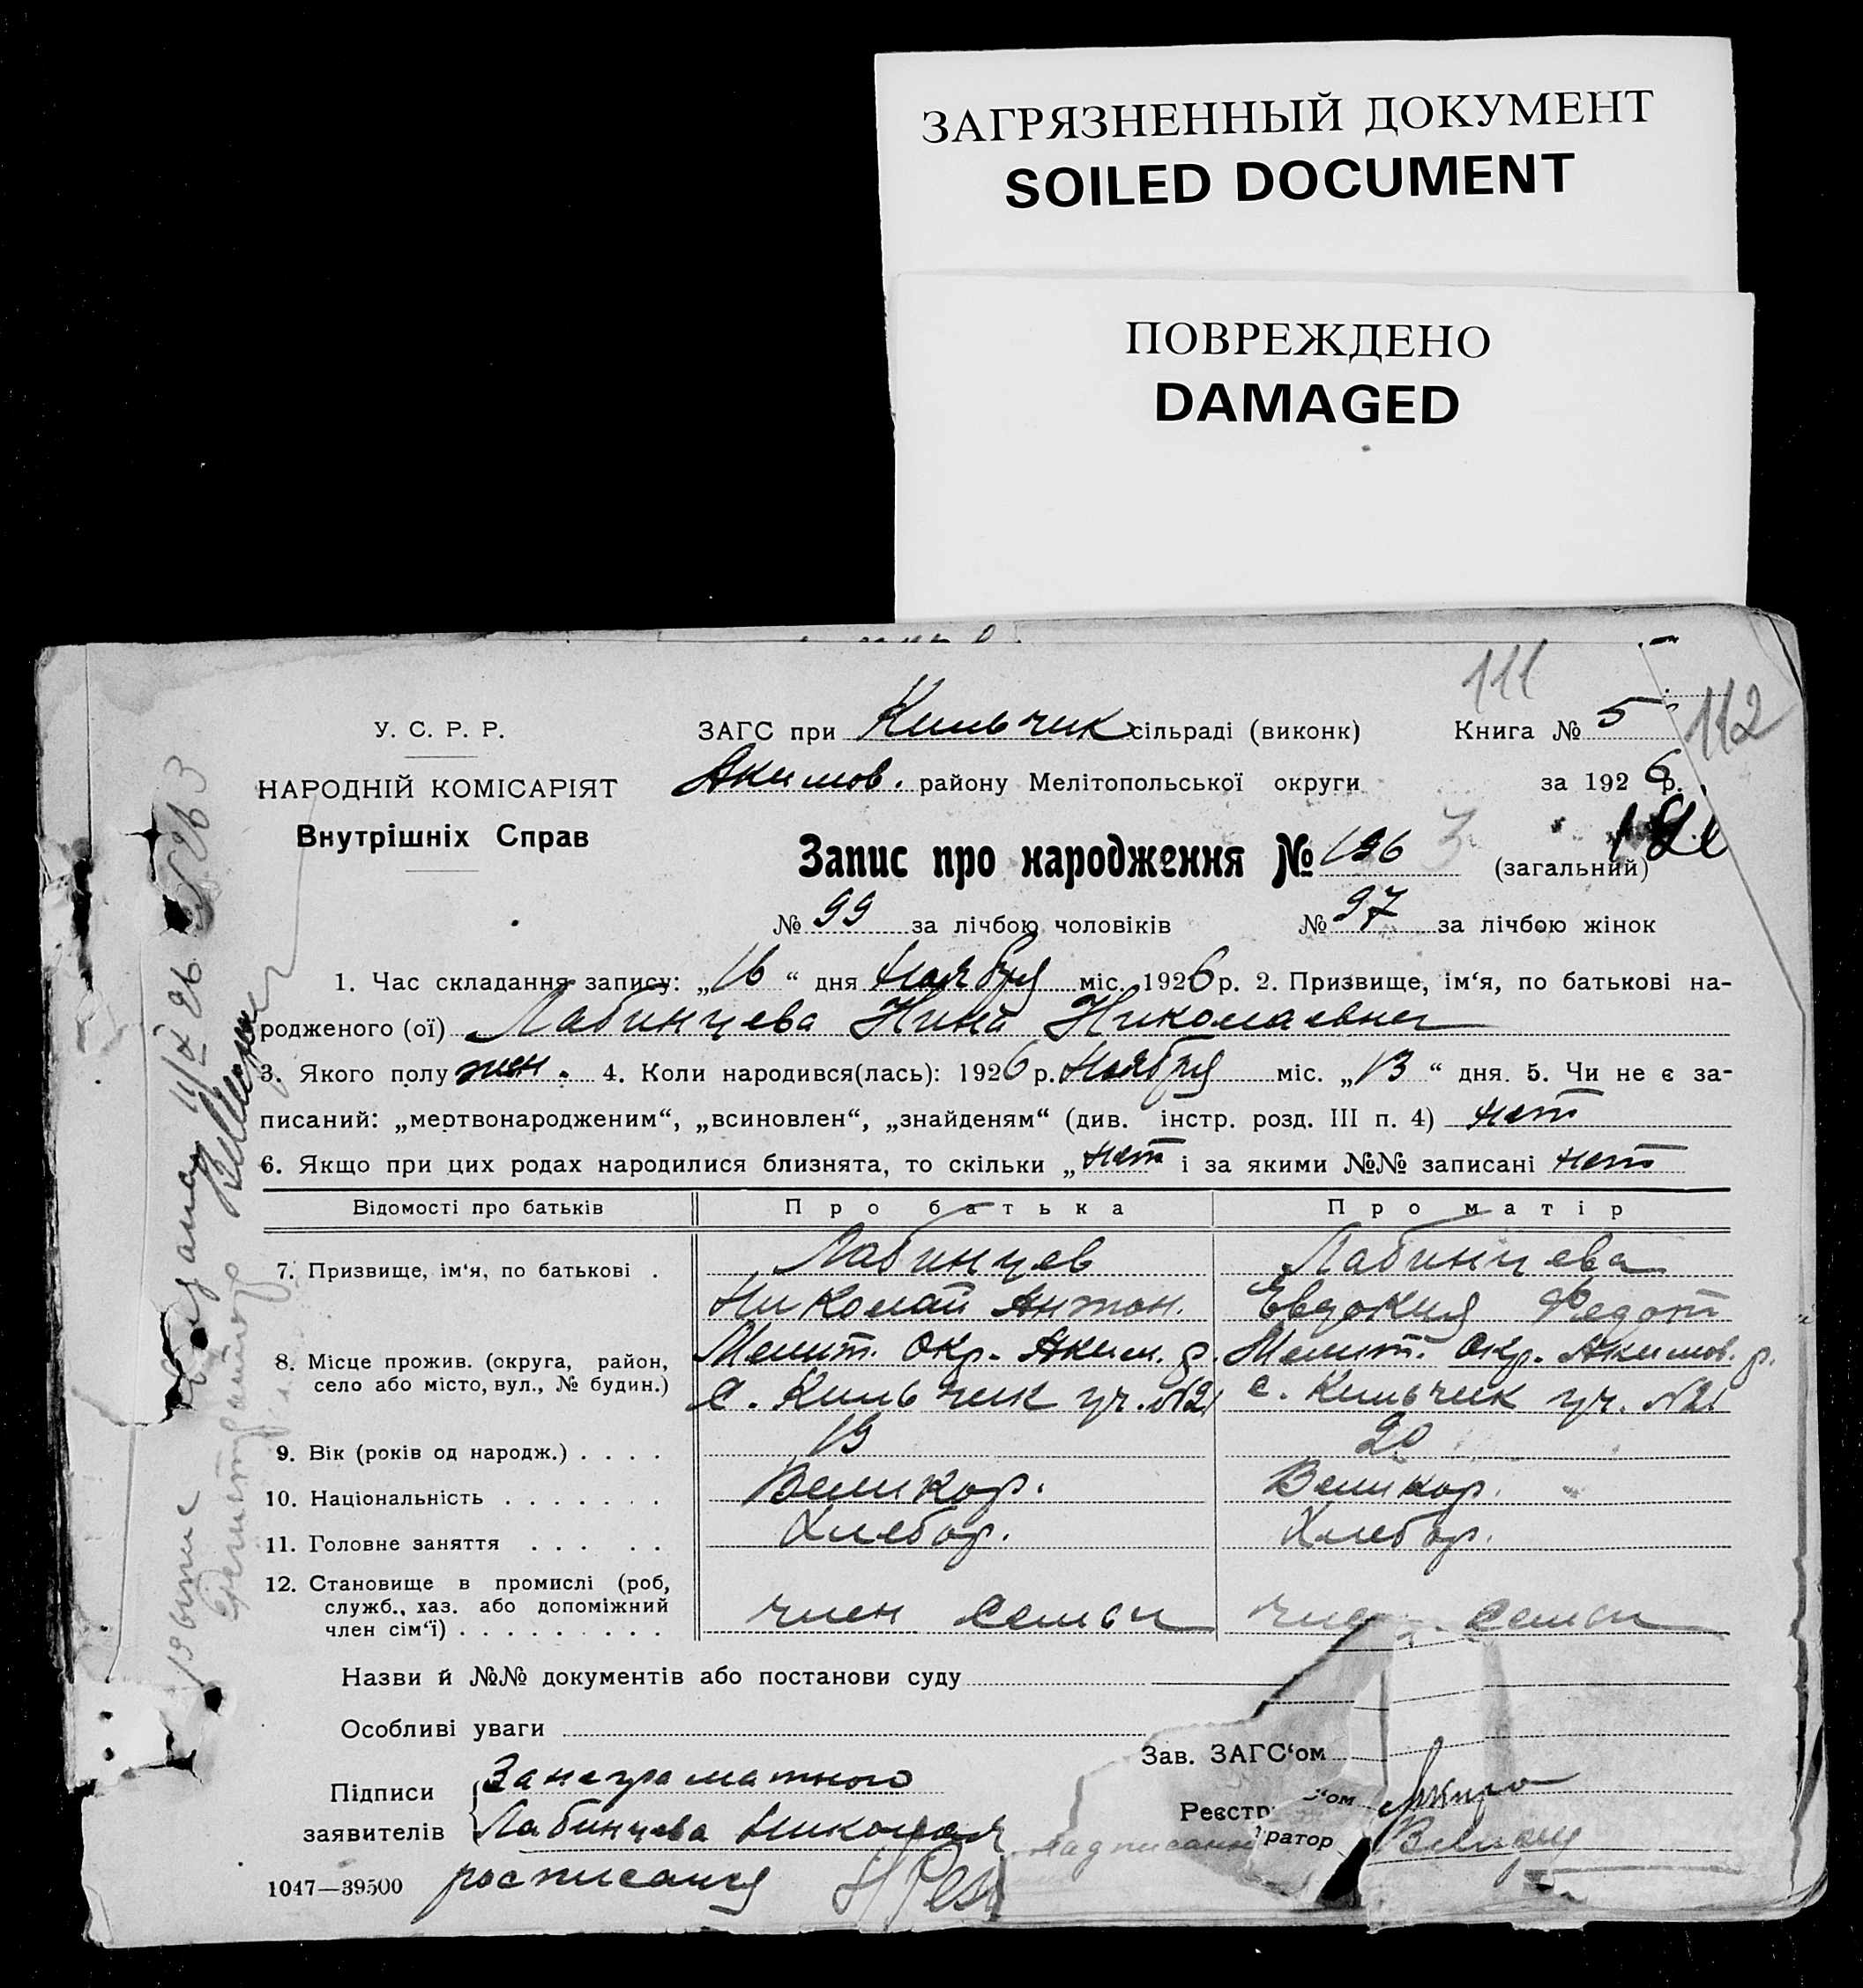 ЗАГРЯЗНЕННЫЙ ДОКУМЕНТ
SOILED DOCUMENT
ПОВРЕЖДЕНО
DAMAGED
111
112
У. С. Р. Р.
НАРОДНІЙ КОМІСАРІЯТ
Внутрішніх Справ
ЗАГС при Кильчик сільраді (виконк) Книга № 5
Акимов. району Мелітопольської округи за 1926 р.
Запис про народження № 196 (загальний)
№ 99 за лічбою чоловіків № 97 за лічбою жінок
1. Час складання запису: „16“ дня Ноября міс. 1926 р. 2. Призвище, ім‘я, по батькові на-
родженого (ої) Лабинцева Нина Николаевна
3. Якого полу жен. 4. Коли народився(лась): 1926 р. Ноября міс. „13“ дня. 5. Чи не є за-
писаний: „мертвонародженим“, „всиновлен“, „знайденям“ (див. інстр. розд. III п. 4) нет
6. Якщо при цих родах народилися близнята, то скільки „нет і за якими №№ записані нет
Відомості про батьків Про батька Про матір
7. Призвище, ім‘я, по батькові . Лабинцев Лабинцева
Николай Антон. Евдокия Федот
8. Місце прожив. (округа, район, Мелит. Окр. Аким. р. Мелит. Окр. Акимов. р.
село або місто, вул., № будин.) с. Кильчик уч. №21 с. Кильчик уч. №21
9. Вік (років од народж.) . . . . 19 20
10. Національність . . . . . . . Великор. Великор.
11. Головне заняття . . . . . Хлебор. Хлебор.
12. Становище в промислі (роб,
служб., хаз. або допоміжний
член сім‘ї) . . . . . . . . . член семьи член семьи
Назви й №№ документів або постанови суду
Особливі уваги
Зав. ЗАГС‘ом
Підписи Занеграматного
заявителів Лабинцева Николая
Реєстр
‘ом
ратор
1047—39500 росписался